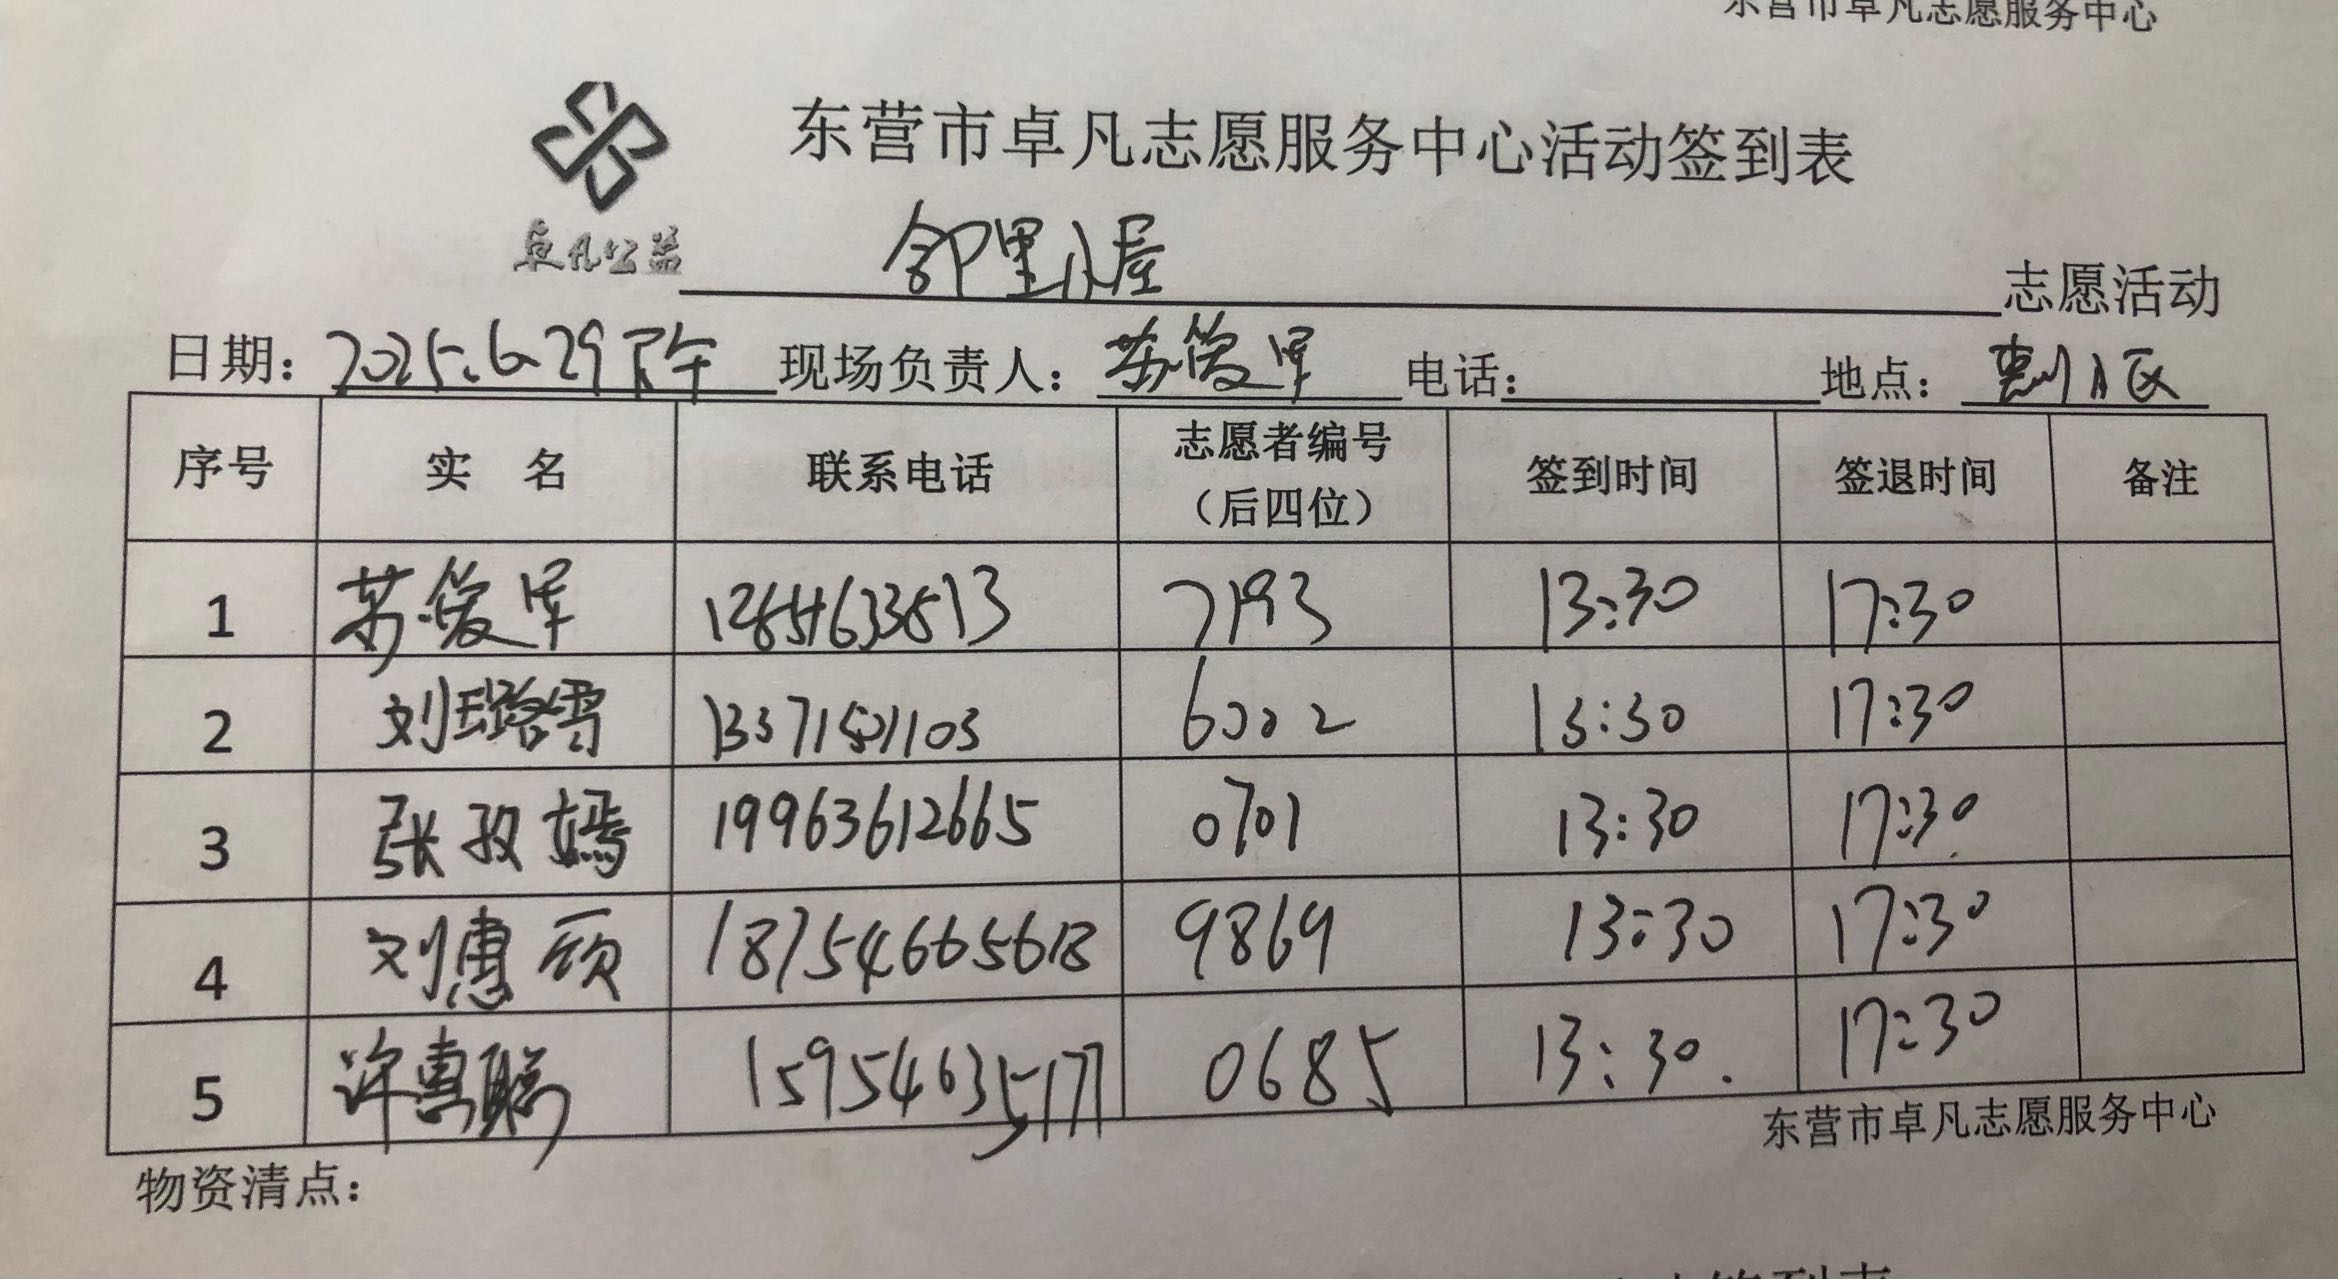 东营市卓凡志愿服务中心
东营市卓凡志愿服务中心活动签到表
卓凡公益
邻里小屋 志愿活动
日期：2025.6.29下午 现场负责人：苏俊军 电话： 地点：惠州小区
序号 实 名 联系电话 志愿者编号（后四位） 签到时间 签退时间 备注
1 苏俊军 7193 13:30 17:30
2 刘璐雪 6002 13:30 17:30
3 张孜嫣 19963612665 0701 13:30 17:30
4 刘惠颀 9869 13:30 17:30
5 许惠聪 15954635177 0685 13:30. 17:30
东营市卓凡志愿服务中心
物资清点：